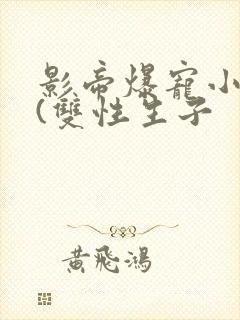 影帝爆寵小
(雙性生子
黃飛鴻